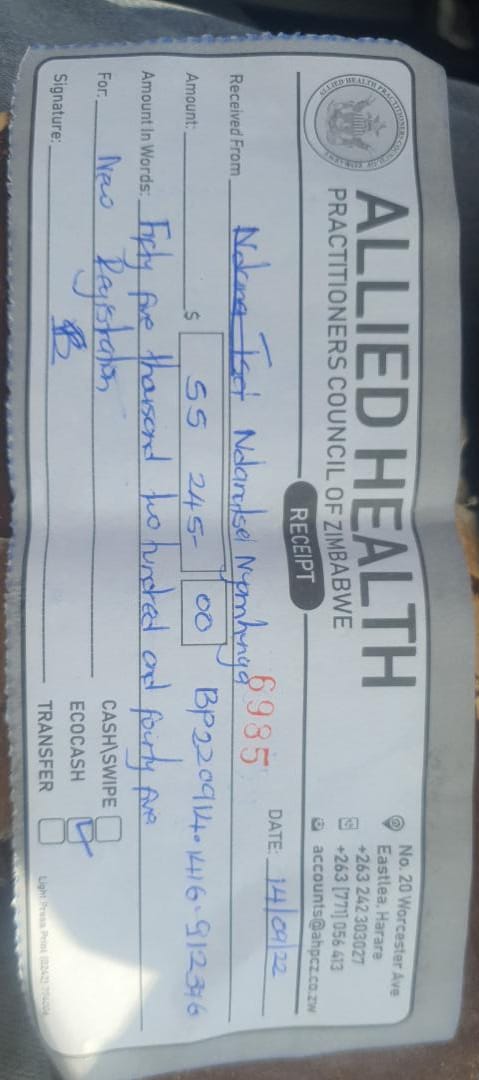 ALLIED HEALTH PRACTITIONERS COUNCIL
ALLIED HEALTH
PRACTITIONERS COUNCIL OF ZIMBABWE
No. 20 Worcester Ave
Eastlea, Harare
+263 242 303027
+263 [771] 056 413
accounts@ahpcz.co.zw
RECEIPT
6985
DATE: 14/09/22
Received From Ndaratsei Nyamhunga
Amount: $ 55 245- 00 BP220914.1416.912346
Amount in Words: Fifty five thousand two hundred and fourty five
For: New Registration
CASH\SWIPE
ECOCASH
TRANSFER
Signature:
Light Press Print